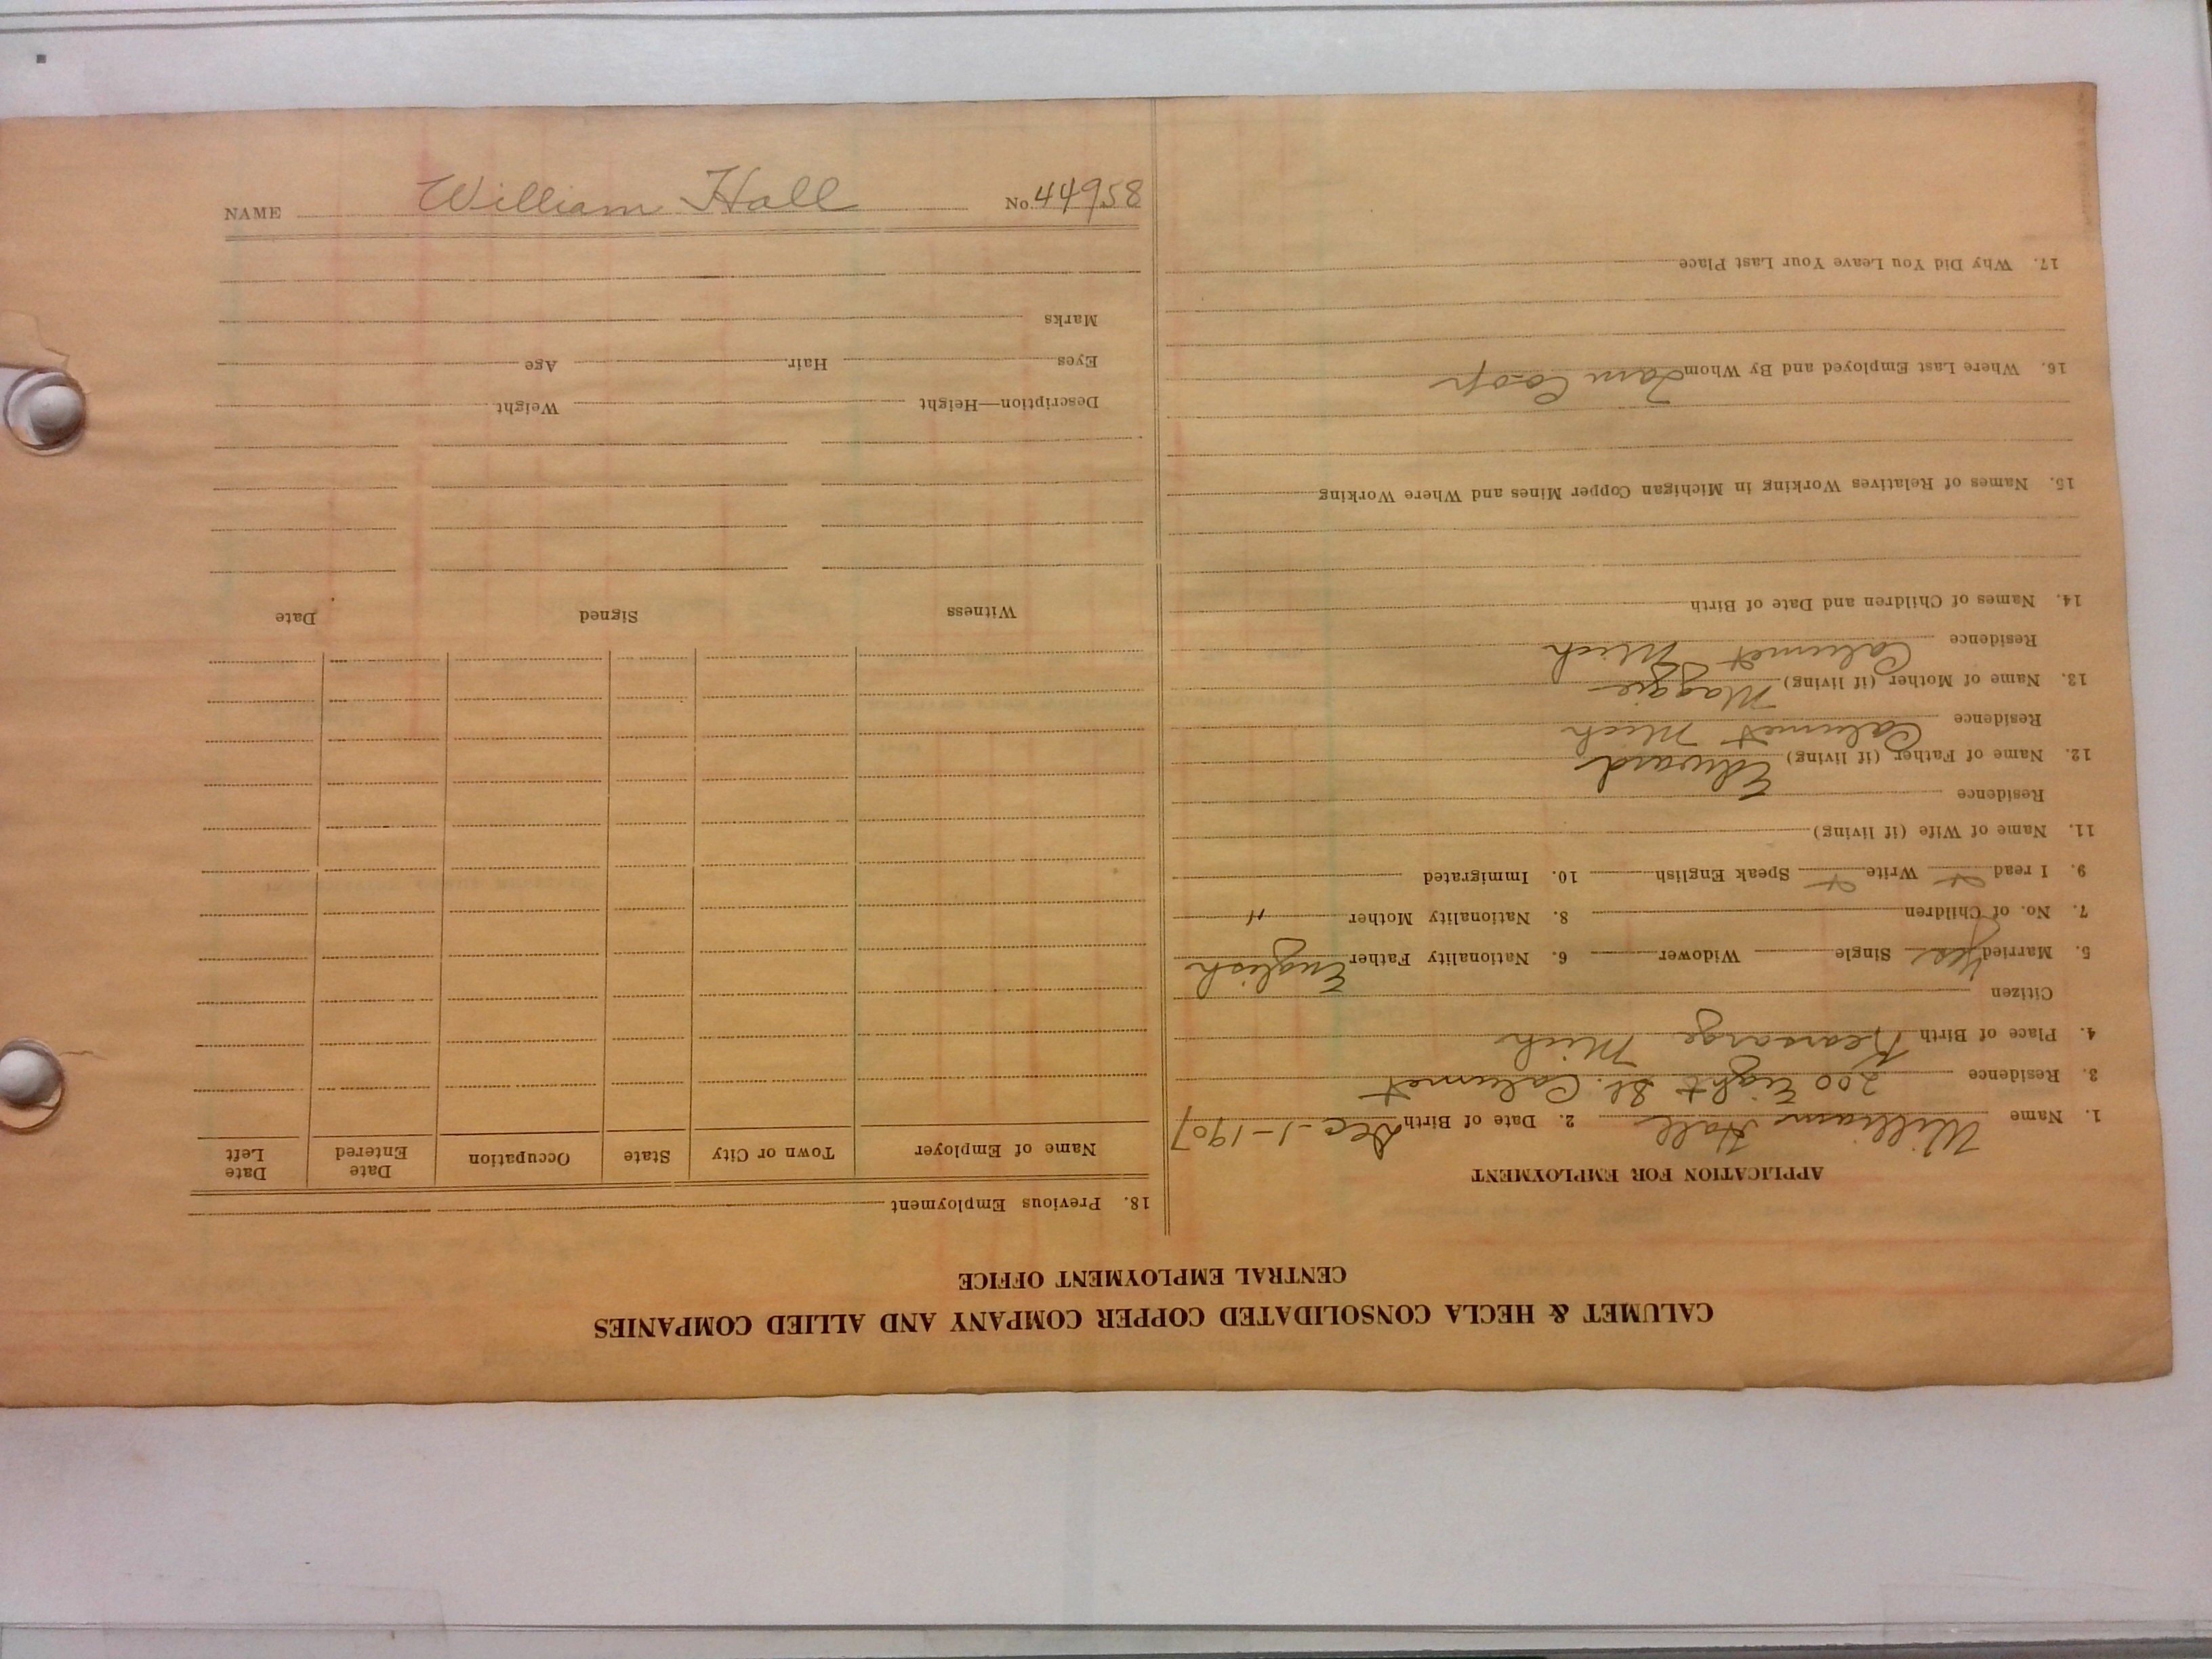 CALUMET & HECLA CONSOLIDATED COPPER COMPANY AND ALLIED COMPANIES
CENTRAL EMPLOYMENT OFFICE
APPLICATION FOR EMPLOYMENT
1. Name William Hall 2. Date of Birth Dec-1-1907
3. Residence 200 Eight St. Calumet
4. Place of Birth Kearsarge Mich
Citizen
5. Married Yes Single Widower 6. Nationality Father English
7. No. of Children 8. Nationality Mother "
9. I read Write Speak English 10. Immigrated
11. Name of Wife (if living)
Residence
12. Name of Father (if living) Edward
Residence Calumet Mich
13. Name of Mother (if living) Maggie
Residence Calumet Mich
14. Names of Children and Date of Birth
15. Names of Relatives Working in Michigan Copper Mines and Where Working
16. Where Last Employed and By Whom Tam Co-op
17. Why Did You Leave Your Last Place
18. Previous Employment
Name of Employer Town or City State Occupation Date Entered Date Left
Witness Signed Date
Description—Height Weight
Eyes Hair Age
Marks
NAME William Hall No. 44958